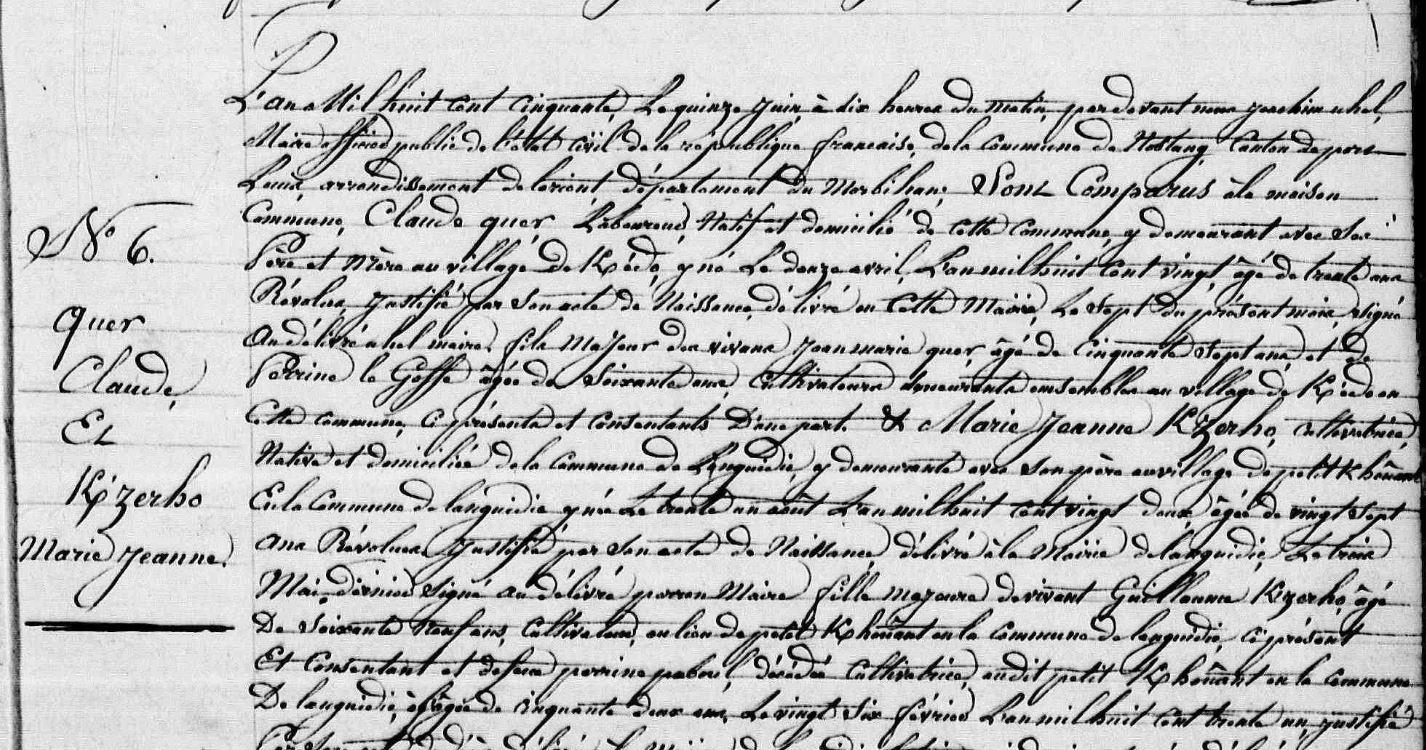 N° 6.
quer
Claude,
Et
K/zerho
Marie Jeanne.
L'an Mil huit cent cinquante, Le quinze Juin, à dix heures du matin, par devant nous Joachim uhel,
Maire officier public de l'état civil de la république francaise, de la Commune de Nostang, Canton de port
Louis arrondissement de lorient département du Morbihan; Sont Comparus à la maison
Commune, Claude quer Laboureur, Natif et domicilié de cette Commune, y demeurant avec Ses
Père et Mère au village de K/édo, y né Le douze avril, L'an mil huit Cent vingt, âgé de trente ans
Révolus, Justifié par Son acte de Naissance, délivré en Cette Mairie, Le Sept du présent mois, Signé
Au délivré uhel maire. fils Majeur des vivans Jean marie quer âgé de Cinquante Sept ans et de
Perrine le Goffe âgée de Soixante ans, Cultivateurs demeurants ensembles au village de K/édo en
Cette commune, Cy présents et Consentants D'une part & Marie Jeanne K/zerho, cultivatrice,
Native et domiciliée de la Commune de Languidic, y demeurante avec Son père au village de petit K/hoüant
En la Commune de languidic y née Le trente un août L'an mil huit Cent vingt deux âgée de vingt Sept
ans Révolus, Justifié par Son acte de Naissance, délivré à la Mairie de languidic, Le treize
Mai dernier Signé au délivré perron Maire fille majeure de vivant Guillaume K/zerho, âgé
De Soixante Neuf ans, Cultivateur, au lieu de petit K/hoüant en la Commune de languidic, cy présent
Et Consentant et de feue perrine paboul, décédée Cultivatrice, audit petit K/hoüant en la commune
De languidic, à l'âge de Cinquante deux ans, Le vingt Six février L'an mil huit Cent trente un, justifié